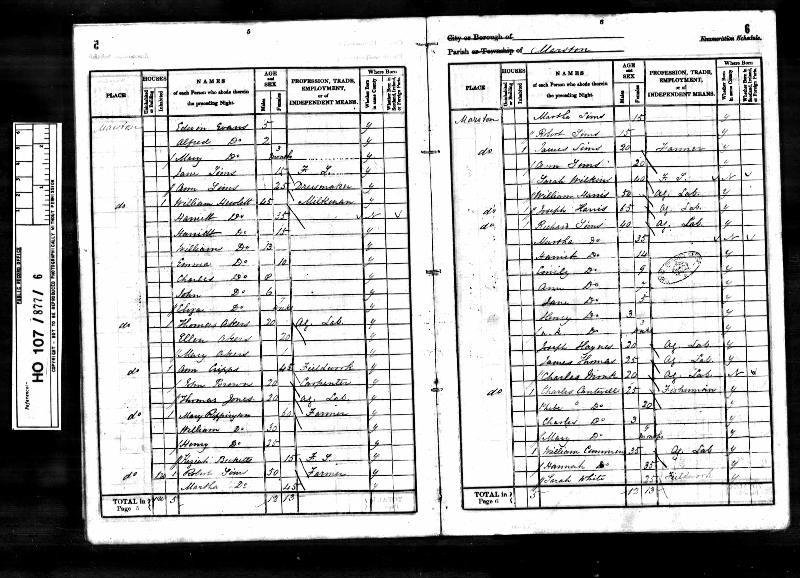 PUBLIC RECORD OFFICE
Reference:-
HO 107 / 877 / 6
COPYRIGHT - NOT TO BE REPRODUCED PHOTOGRAPHICALLY WITHOUT PERMISSION
5
5
PLACE HOUSES NAMES AGE and SEX PROFESSION, TRADE, EMPLOYMENT, or of INDEPENDENT MEANS. Where Born
Uninhabited or Building Inhabited of each Person who abode therein the preceding Night. Males Females Whether Born in same County Whether Born in Scotland, Ireland, or Foreign Parts.
Marston Edwin Evans 5 y
Alfred Do 2 y
Mary Do 3 months y
Jane Sims 15 F. S. y
Ann Sims 25 Dressmaker y
do 1 William Hewlett 45 Milkman y
Harriett Do 35 N
Harriett Do 15 y
William Do 13 y
Emma Do 10 y
Charles Do 8 y
John Do 6 y
Eliza Do y
do 1 Thomas Akers 20 Ag. Lab. y
Ellen Akers 20 y
Mary Akers 1 y
do 1 Ann Cripps 45 Fieldwork y
John Brown 20 Carpenter y
Thomas Jones 20 Ag. Lab. y
do 1 Mary 60 Farmer y
William Do 30 y
Henry Do 25 y
15 F. S. y
do 1 Robt Sims 50 Farmer y
Martha Do 45 y
TOTAL in Page 5 5 12 13
6
6
City or Borough of
Parish or Township of Marston
Enumeration Schedule.
PLACE HOUSES NAMES AGE and SEX PROFESSION, TRADE, EMPLOYMENT, or of INDEPENDENT MEANS. Where Born
Uninhabited or Building Inhabited of each Person who abode therein the preceding Night. Males Females Whether Born in same County Whether Born in Scotland, Ireland, or Foreign Parts.
Marston Martha Sims 15 y
Robert Sims 15 y
do 1 James Sims 20 Farmer y
Ann Sims 20 y
Sarah Wilkins 40 F. S. N
William Harris 50 Ag. Lab. y
do 1 Joseph Harris 65 Ag. Lab. y
do 1 Richard Sims 40 Ag. Lab. y
Martha do 35 N
Harriet Do 14 y
Emily Do 9 y
Ann Do 7 y
Jane Do 5 y
Henry Do 3 y
Do y
Joseph Haynes 20 Ag. Lab. y
James Thomas 25 Ag. Lab. y
Charles 20 Ag. Lab. N
do 1 Charles Cantwell 25 Fisherman y
Phebe Do 20 y
Charles Do 3 y
Mary Do months y
1 William 35 Ag. Lab y
Hannah Do 35 y
Sarah White 25 Fieldwork y
TOTAL in Page 6 5 12 13